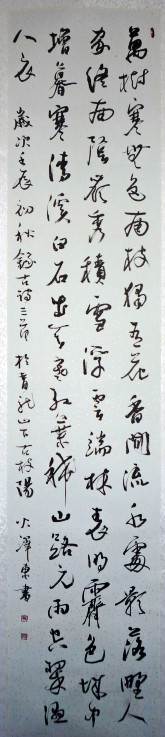 萬樹寒無色南枝獨有花香聞流水處影落野人
家終南陰嶺秀積雪浮雲端林表明霽色城中
增暮寒清溪白石出天寒紅葉稀山路元雨空翠濕
人衣 歲次壬辰初秋錄古詩三首於青龍山下古林陽 火澤東書